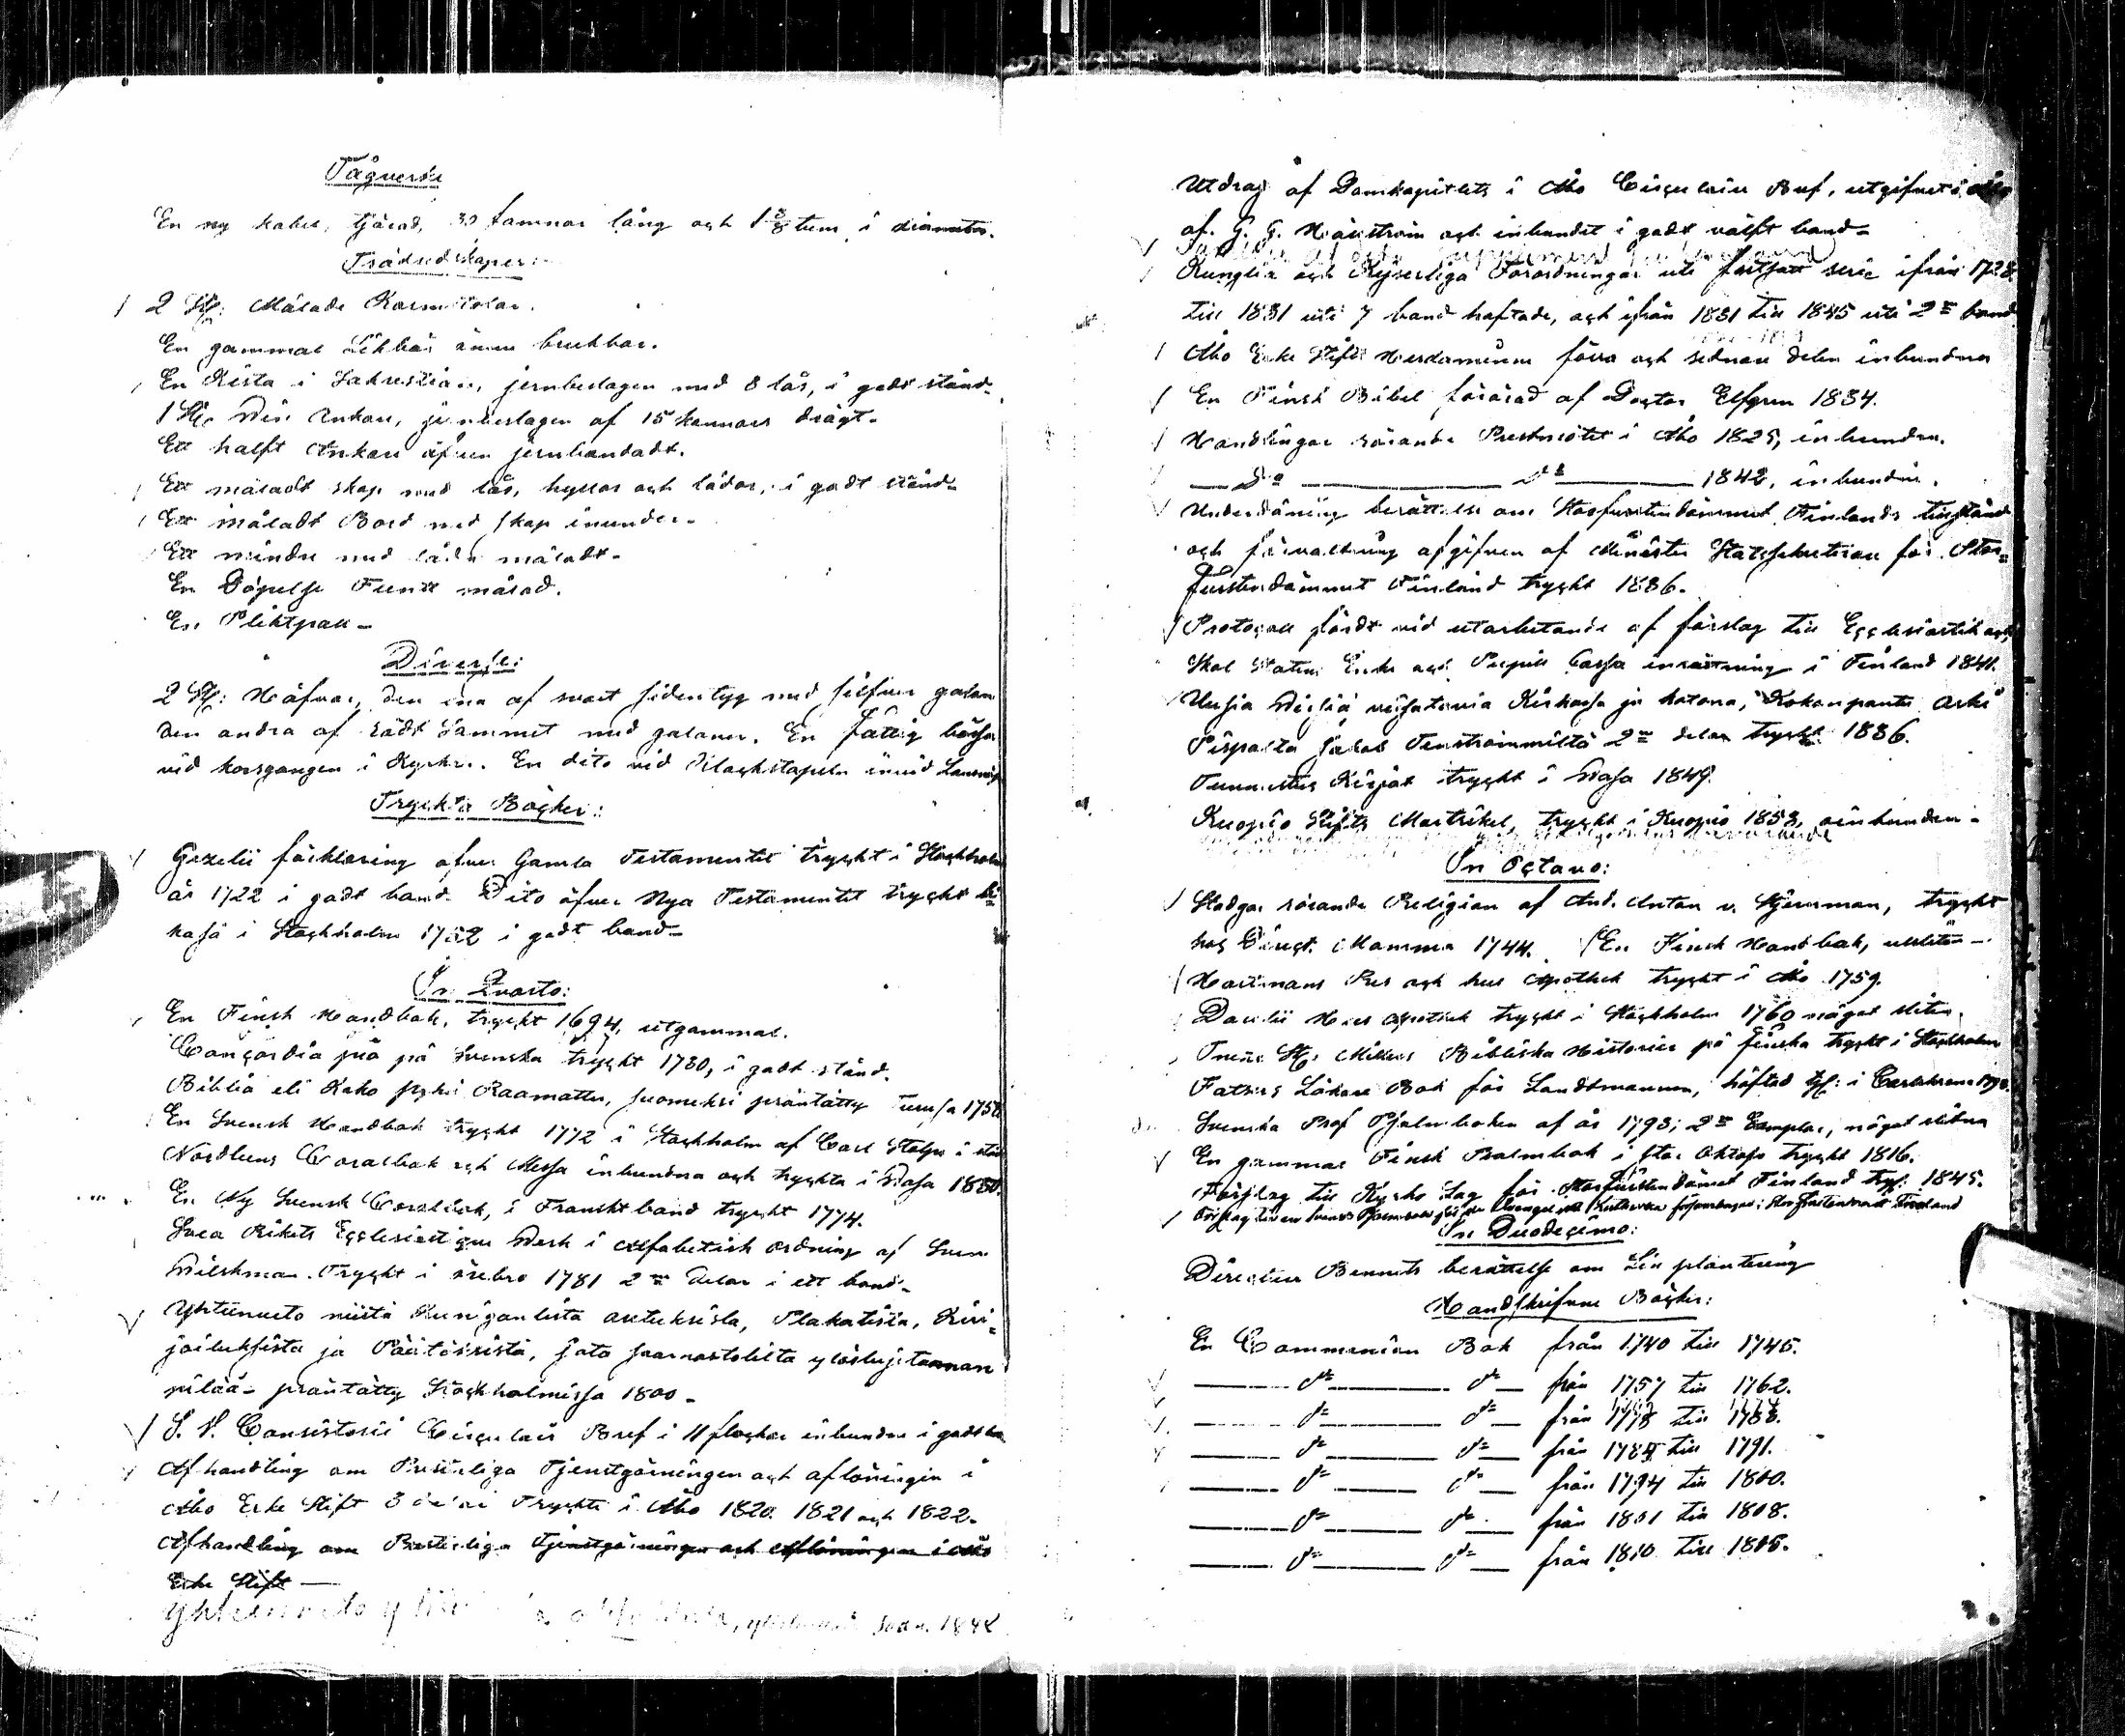 Tågverke
En ny kabel, tjärad, 30 famnar lång och 1 3/8 tum i diameter.
Trädredskaper:
2 St: Målade Karmstolar.
En gammal Likbår ännu brukbar.
En Kista i Sakristian, jernbeslagen med 8 lås, i godt stånd.
1 St: Vin Ankare, jernbeslagen af 15 kannors drägt.
Ett halft Ankare äfven jernbandadt.
Ett måladt skap med lås, hyllor och lådor, i godt stånd.
Ett måladt Bord med skap inunder.
Ett mindre med låda måladt.
En Döpelse Funt målad.
En Pliktpall
Diverse:
2 St: Håfvar, den ena af svart sidentyg med silfver galon
den andra af rödt Sammet med galoner. En fattig bössa
vid korsgången i Kyrkan. En dito vid Klockstapeln invid Landsväg
Tryckta Böcker:
Gezelii förklaring öfver Gamla Testamentet tryckt i Stockholm
år 1722 i godt band. Dito öfver Nya Testamentet tryckt li=
kaså i Stockholm 1752 i godt band
In Quarto:
En Finsk Handbok, tryckt 1694, utgammal.
Concordia pia på Svenska tryckt 1730, i godt stånd.
Biblia eli Koko Pyhä Raamattu, suomeksi präntätty Turusa 1758
En Svensk Handbok tryckt 1772 i Stockholm af Carl Stolpe i
Nordlunds Choralbok och Messa inbundna och tryckta i Wasa 1850.
En Ny Svensk Choralbok, i Franskt band tryckt 1774.
Svea Rikets Ecclesiastique Werk i alfabetisk ordning af Sven
Wilskman. Tryckt i Örebro 1781 2ne delar i ett band.
Yhteenveto niistä Kuningalista asetuksista, Plakatista, Kiri=
joituksista ja Päätöksistä, jota saarnastolilta ylösluetaman
pitää präntätty Stockholmissa 1800
S. V. Consistorii Circulair Bref i 11 flockar inbundna i godt
Afhandling om Presterliga Tjenstgörningen och aflöningen i
Åbo Erke Stift 3 delar Tryckte i Åbo 1820. 1821 och 1822.
Afhandling om Presterliga Tjenstgörningen och Aflöningen i Åbo
Erke Stift
Yhteenveto 1848
Utdrag af Domkapitlets i Åbo Circulair Bref, utgifvet i Åbo
af G. G. Hällström och inbundet i godt välft band
Kungliga och Kejserliga Förordningar uti fortsatt serie ifrån 1728
till 1831 uti 7 band häftade, och ifrån 1831 till 1845 uti 2ne band
Åbo Erke Stifts Herdaminne förra och sednare delen inbundna
En Finsk Bibel förärad af Doctor Elfgren 1834.
Handlingar rörande Prestmötet i Åbo 1825, inbunden.
— Do — Do — 1842, inbunden.
Underdånig berättelse om Storfurstendömmet Finlands tillstånd
och förvaltning afgifven af Minister Statssekreteraren för Stor=
furstendömmet Finland tryckt 1836.
Protocoll fördt vid utarbetande af förslag till Ecclesiastik och
Skol Statens Enke och Pupill Cassa inrättning i Finland 1841.
Uusia Virsiä veisatavia Kirkossa ja kotona, Kokoonpantu
Piispalta Jakob Tengströmmiltä 2ne delar tryckt 1836.
Tunnustus Kirjat tryckt i Wasa 1849.
Kuopio Stifts Matrikel, tryckt i Kuopio 1853, oinbunden
In Octavo:
Stadgar rörande Religion af And. Anton v. Stjernman, tryckt
hos Direct. Momma 1744. En Finsk Handbok, utsliten
Hartmans Res och hus Apothek tryckt i Åbo 1759.
Darelii Hus Apothek tryckt i Stockholm 1760 något sliten.
Trenne St: Militers Bibliska Historier på finska tryckt i Stockholm
Fathers Läkare Bok för Landtmannen, häftad tr: i Carlskrona 1793.
Svenska Prof Psalmboken af år 1793; 2ne Exemplar, något slitna
En gammal Finsk Psalmbok i stor Oktav tryckt 1816.
Förslag till Kyrko Lag för Storfurstendömet Finland tryc: 1845.
Förslag till en Svensk Psalmbok för de Evangelisk Lutherska församlingar i Storfurstendömet Finland
In Duodecimo:
Directeur Bennets berättelse om Lin plantering
Handskrifvne Böcker:
En Communion Bok från 1740 till 1745.
— do — do — från 1757 till 1762.
— do — do — från 1778 till 1788.
— do — do — från 1785 till 1791.
— do — do — från 1794 till 1800.
— do — do — från 1801 till 1808.
— do — do — från 1810 till 1815.